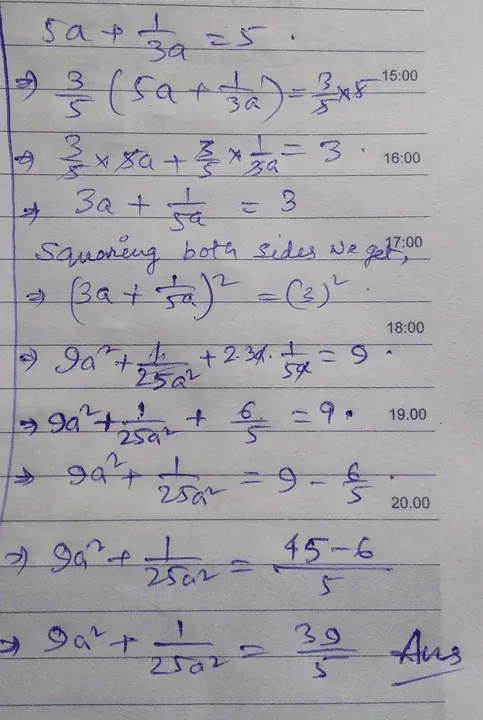 5a + 1/3a = 5 .
⇒ 3/5 (5a + 1/3a) = 3/5 × 5
15:00
⇒ 3/5 × 5a + 3/5 × 1/3a = 3 .
16:00
⇒ 3a + 1/5a = 3
Squaring both sides we get,
17:00
⇒ (3a + 1/5a)² = (3)² .
18:00
⇒ 9a² + 1/25a² + 2 3a . 1/5a = 9 .
⇒ 9a² + 1/25a² + 6/5 = 9 .
19.00
⇒ 9a² + 1/25a² = 9 - 6/5 .
20.00
⇒ 9a² + 1/25a² = 45-6/5
⇒ 9a² + 1/25a² = 39/5 Ans